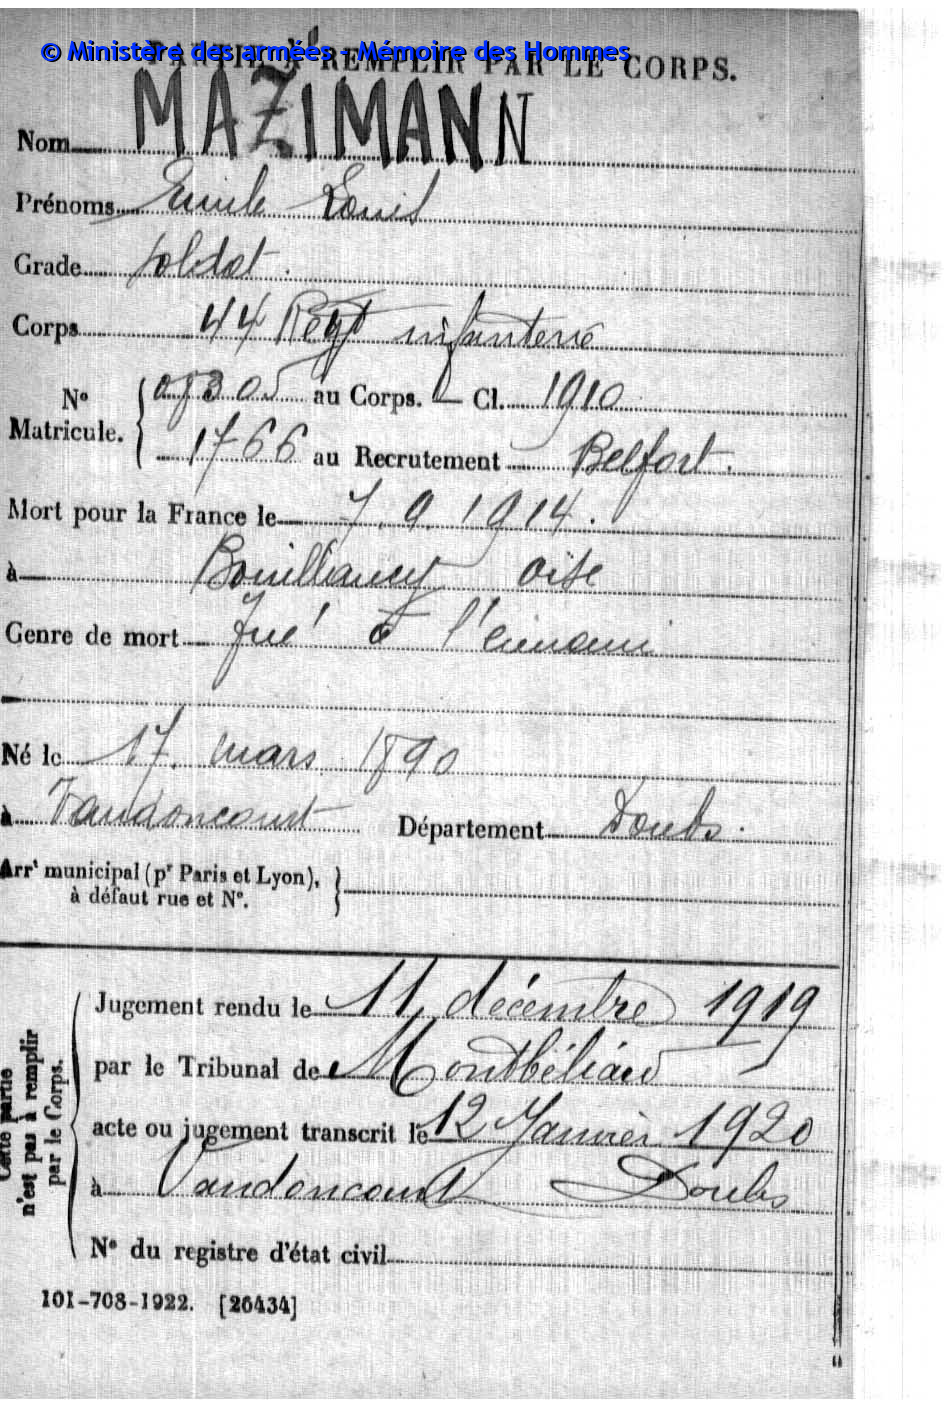 © Ministère des armées - Mémoire des Hommes
PARTIE À REMPLIR PAR LE CORPS.
Nom MAZIMANN
Prénoms Emile Louis
Grade soldat.
Corps 44 Regt infanterie
N° Matricule. { 08305 au Corps. — Cl. 1910
1766 au Recrutement Belfort.
Mort pour la France le 7.9.1914.
à Bouillancy oise
Genre de mort Tué à l'ennemi
Né le 17. mars 1890
à Vandoncourt Département Doubs.
Arrt municipal (pr Paris et Lyon), }
à défaut rue et N°.
Cette partie
n'est pas à remplir
par le Corps.
Jugement rendu le 11 décembre 1919
par le Tribunal de Montbéliard
acte ou jugement transcrit le 12 Janvier 1920
à Vandoncourt Doubs
N° du registre d'état civil
101-708-1922. [26434]